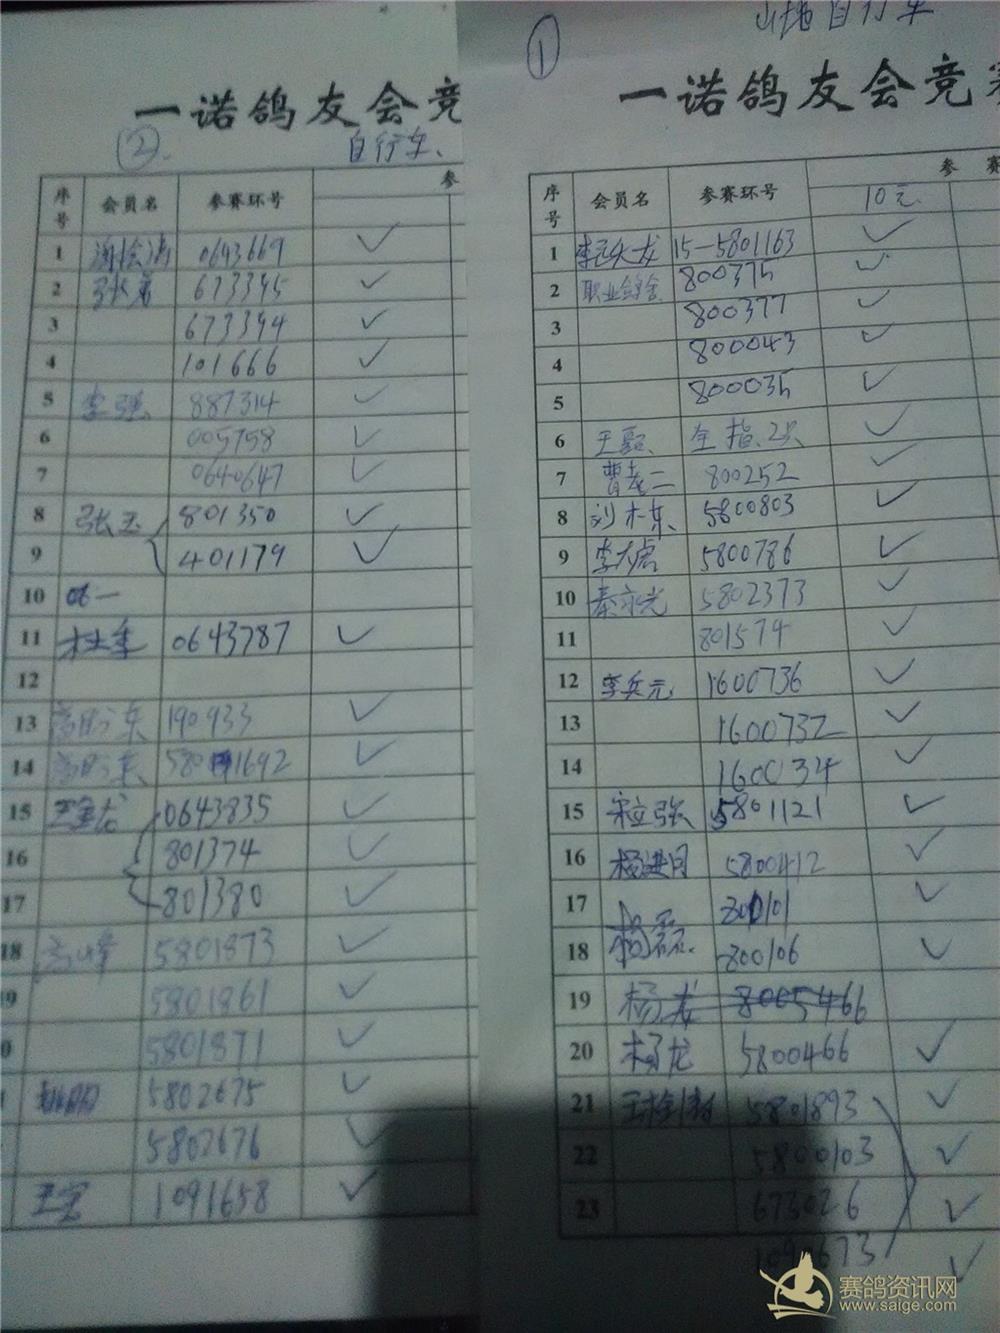 一诺鸽友会竞
②.
自行车、
序号 会员名 参赛环号 参
1 0643669 ✓
2 673345 ✓
3 673394 ✓
4 101666 ✓
5 李强 887314 ✓
6 005758 ✓
7 0640647 ✓
8 张玉 801350 ✓
9 401179 ✓
10
11 0643787 ✓
12
13 190933 ✓
14 1692 ✓
15 0643835 ✓
16 801374 ✓
17 801380 ✓
18 高峰 5801873 ✓
9 5801861 ✓
0 5801871 ✓
5802675 ✓
5802676 ✓
1091658 ✓
①
山地自行车
一诺鸽友会竞赛
序号 会员名 参赛环号 参 赛
10元
1 15-5801163 ✓
2 职业鸽舍 800375 ✓
3 800377 ✓
4 800043 ✓
5 800035 ✓
6 全指、2只 ✓
7 曹老二 800252 ✓
8 刘木东 5800803 ✓
9 李大虎 5800786 ✓
10 秦永光 5802373 ✓
11 801574 ✓
12 李兵元 1600736 ✓
13 1600732 ✓
14 1600734 ✓
15 宋立强 5801121 ✓
16 杨进月 5800412 ✓
17 800101 ✓
18 杨磊 800106 ✓
19 杨龙 8005466
20 杨龙 5800466 ✓
21 5801893 ✓
22 5800103 ✓
23 673026 ✓
1090673 ✓
赛鸽资讯网
www.saige.com